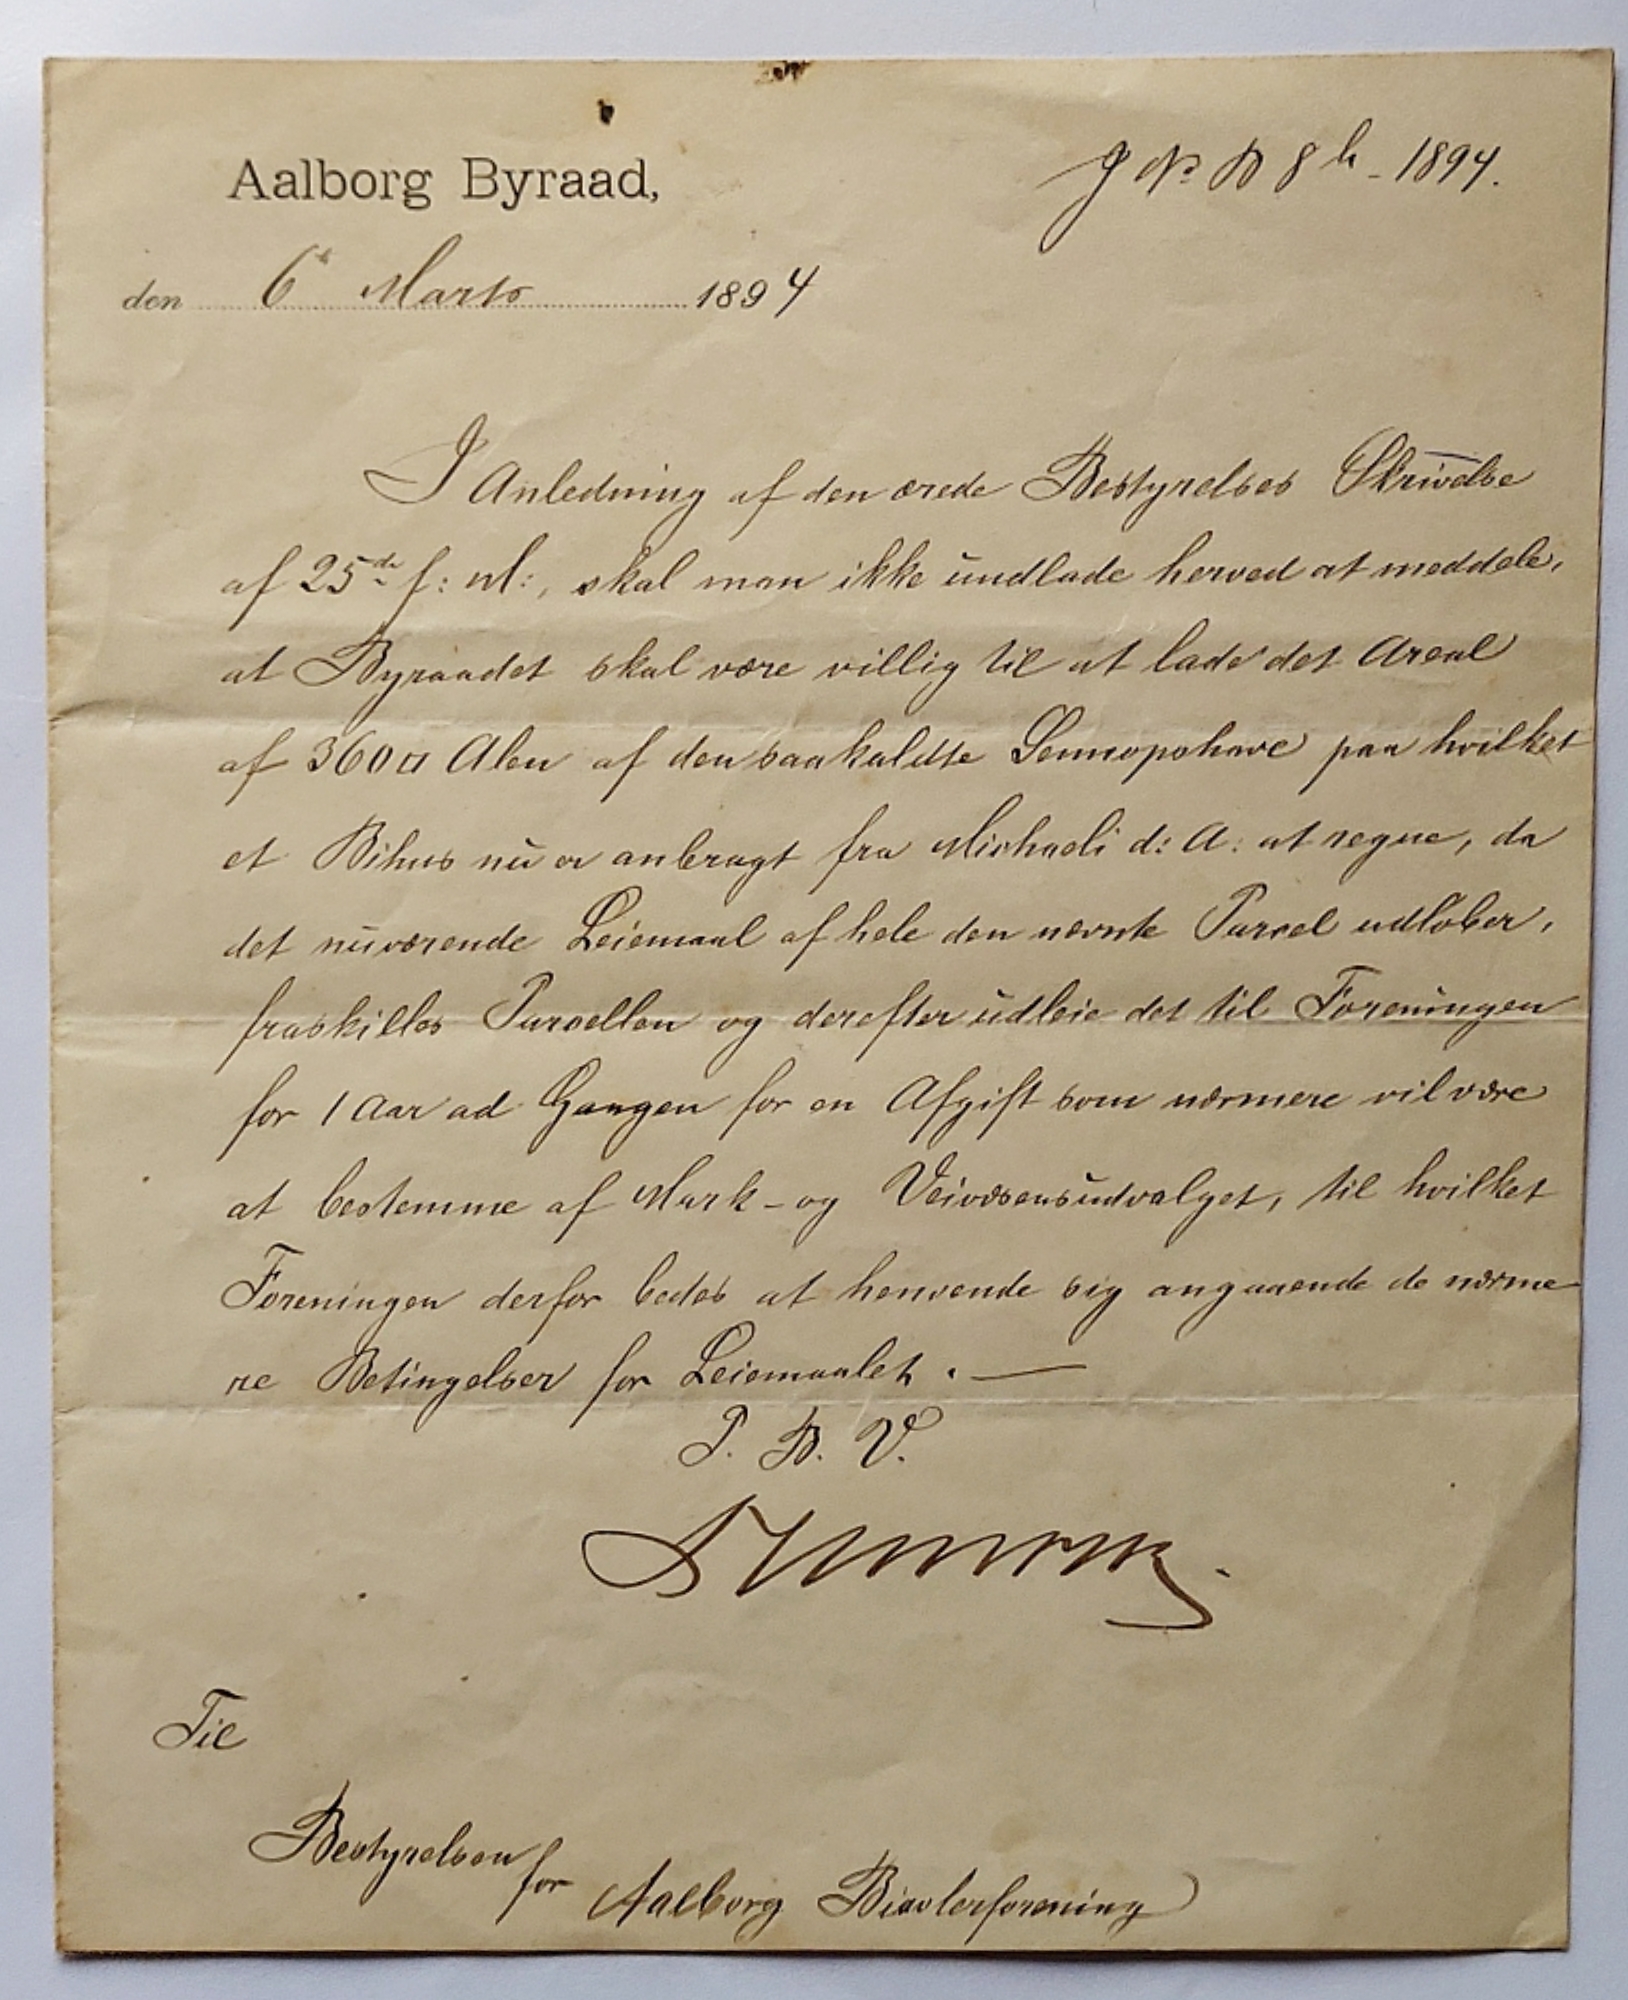 Aalborg Byraad,
J No B 8 h - 1894.
den 6te Marts 1894
I Anledning af den ærede Bestyrelses Skrivelse
af 25de f: M:, skal man ikke undlade herved at meddele,
at Byraadet skal være villig til at lade det Areal
af 360 □ Alen af den saakaldte Sennepshave paa hvilket
et Bihus nu er anbragt fra Michaeli d: A: at regne, da
det nuværende Leiemaal af hele den nævnte Parcel udløber,
fraskilles Parcellen og derefter udleie det til Foreningen
for 1 Aar ad Gangen for en Afgift som nærmere vil være
at bestemme af Mark- og Veivæsensudvalget, til hvilket
Foreningen derfor bedes at henvende sig angaaende de nærme
re Betingelser for Leiemaalet. —
P. B. V.
Til
Bestyrelsen for Aalborg Biavlerforening